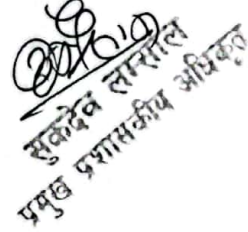 सुकदेव लम्साल
प्रमुख प्रशासकीय अधिकृत